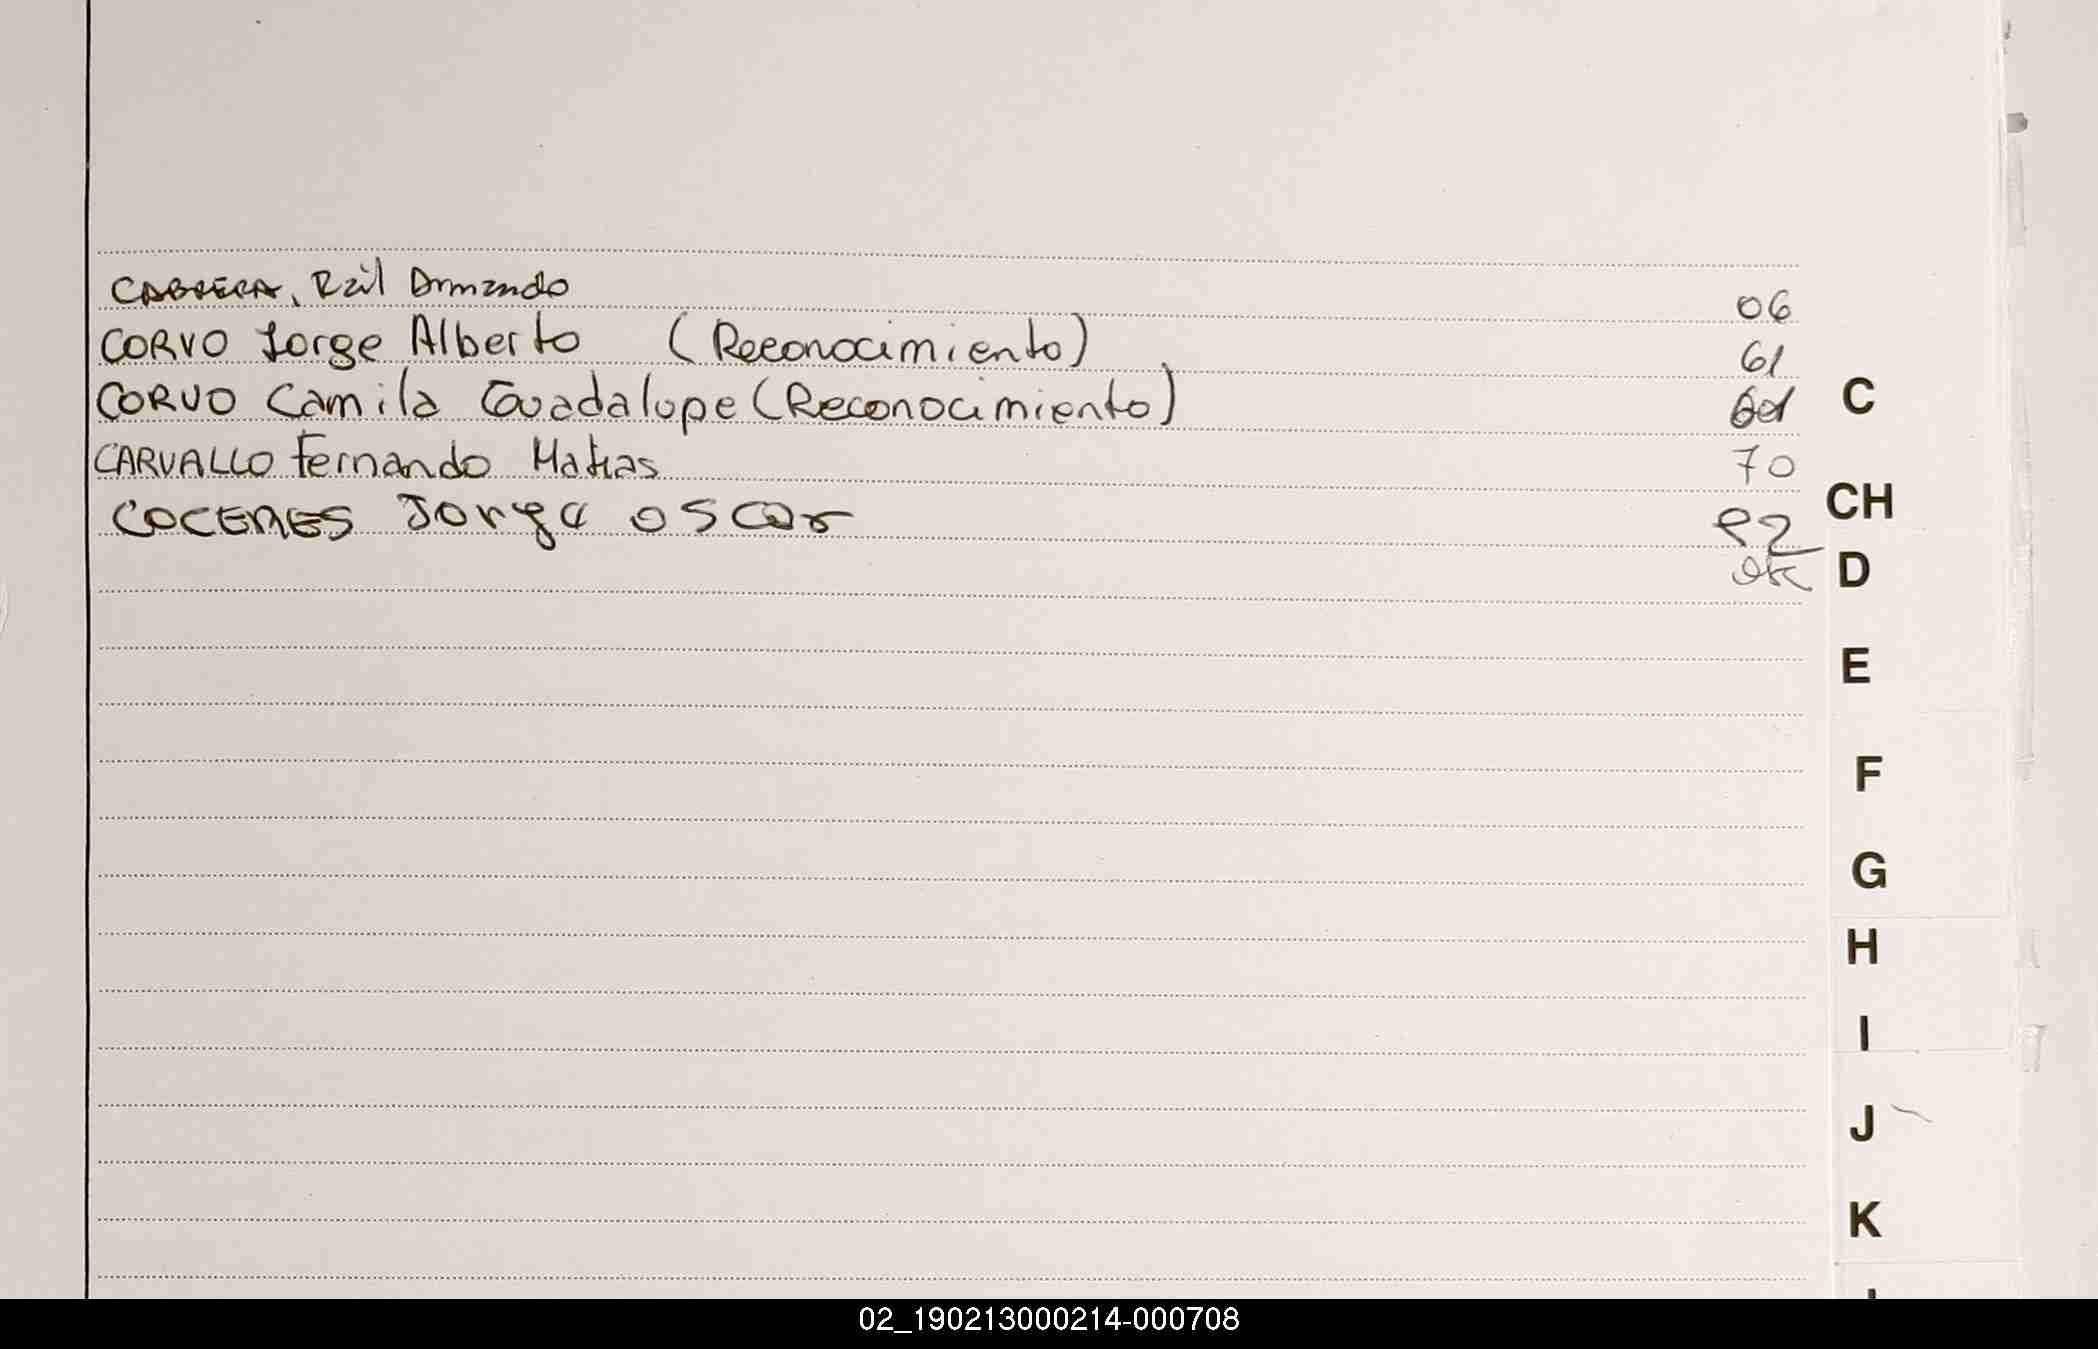 CABRERA, Raúl Armando 06
CORVO Jorge Alberto (Reconocimiento) 61
CORVO Camila Guadalupe (Reconocimiento)
C
CARVALLO Fernando Matias 70
CH
COCERES Jorge oscar
ok
D
E
F
G
H
I
J
K
02_190213000214-000708